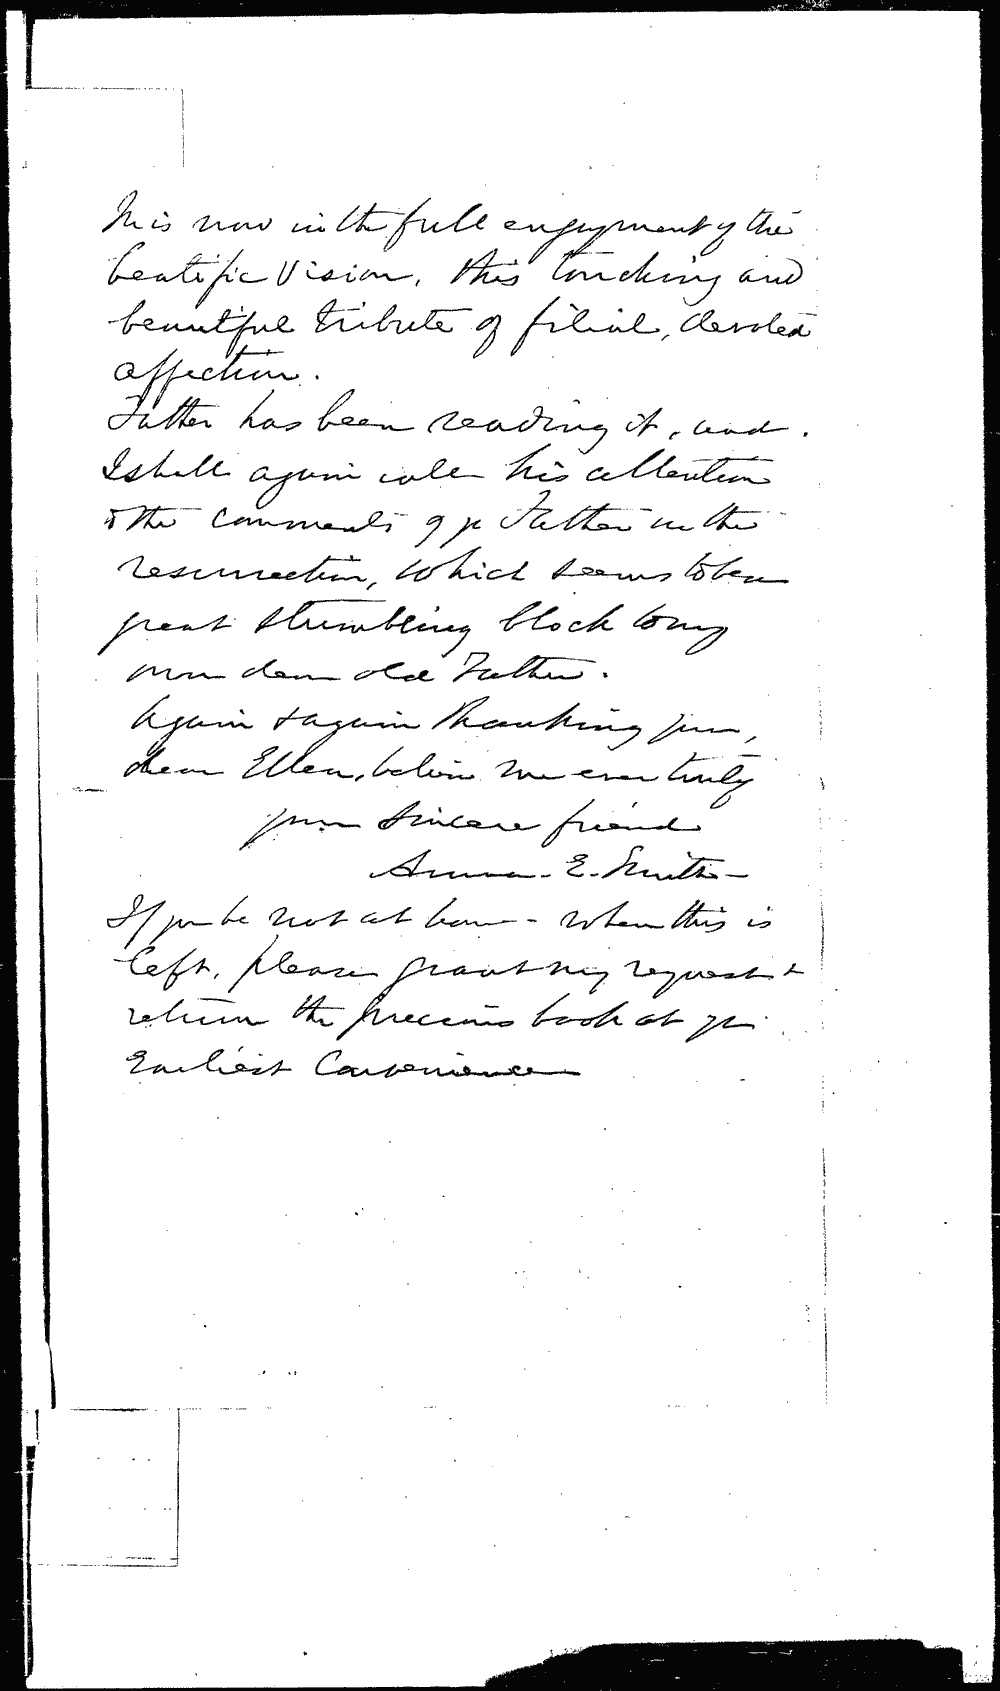 He is now in the full enjoyment of the
beatific Vision, this touching and
beautiful tribute of filial, devoted
affection.
Father has been reading it, and
I shall again call his attention
to the comments of yr Father on the
resurrection, which seems to be a
great stumbling block to my
own dear old Father.
Again & again thanking you,
dear Ellen, believe me ever truly
your sincere friend
Anna. E. Smith -
If you be not at home - when this is
left, please grant my request &
return the precious book at yr
Earliest Convenience